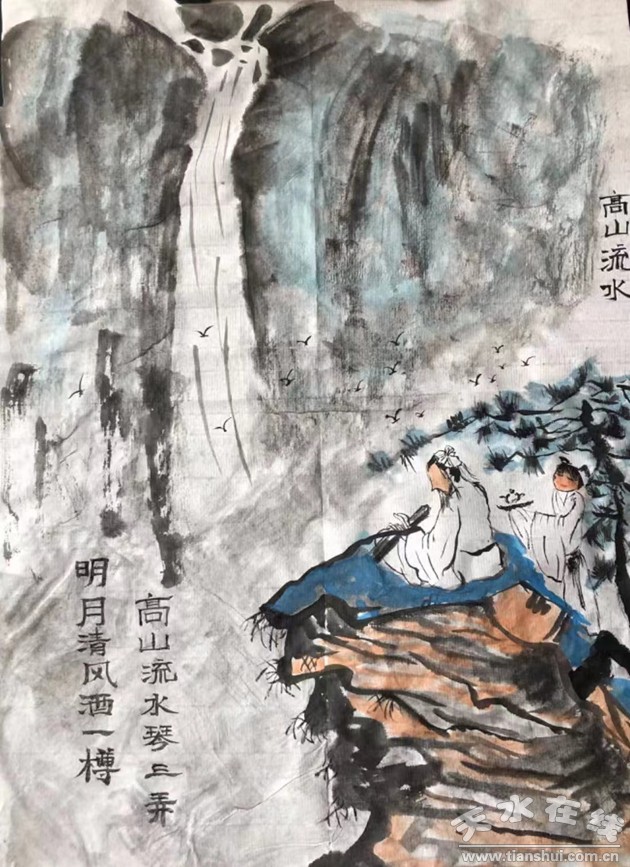 高山流水
高山流水琴三弄
明月清风酒一樽
天水在线
www.tianshui.com.cn